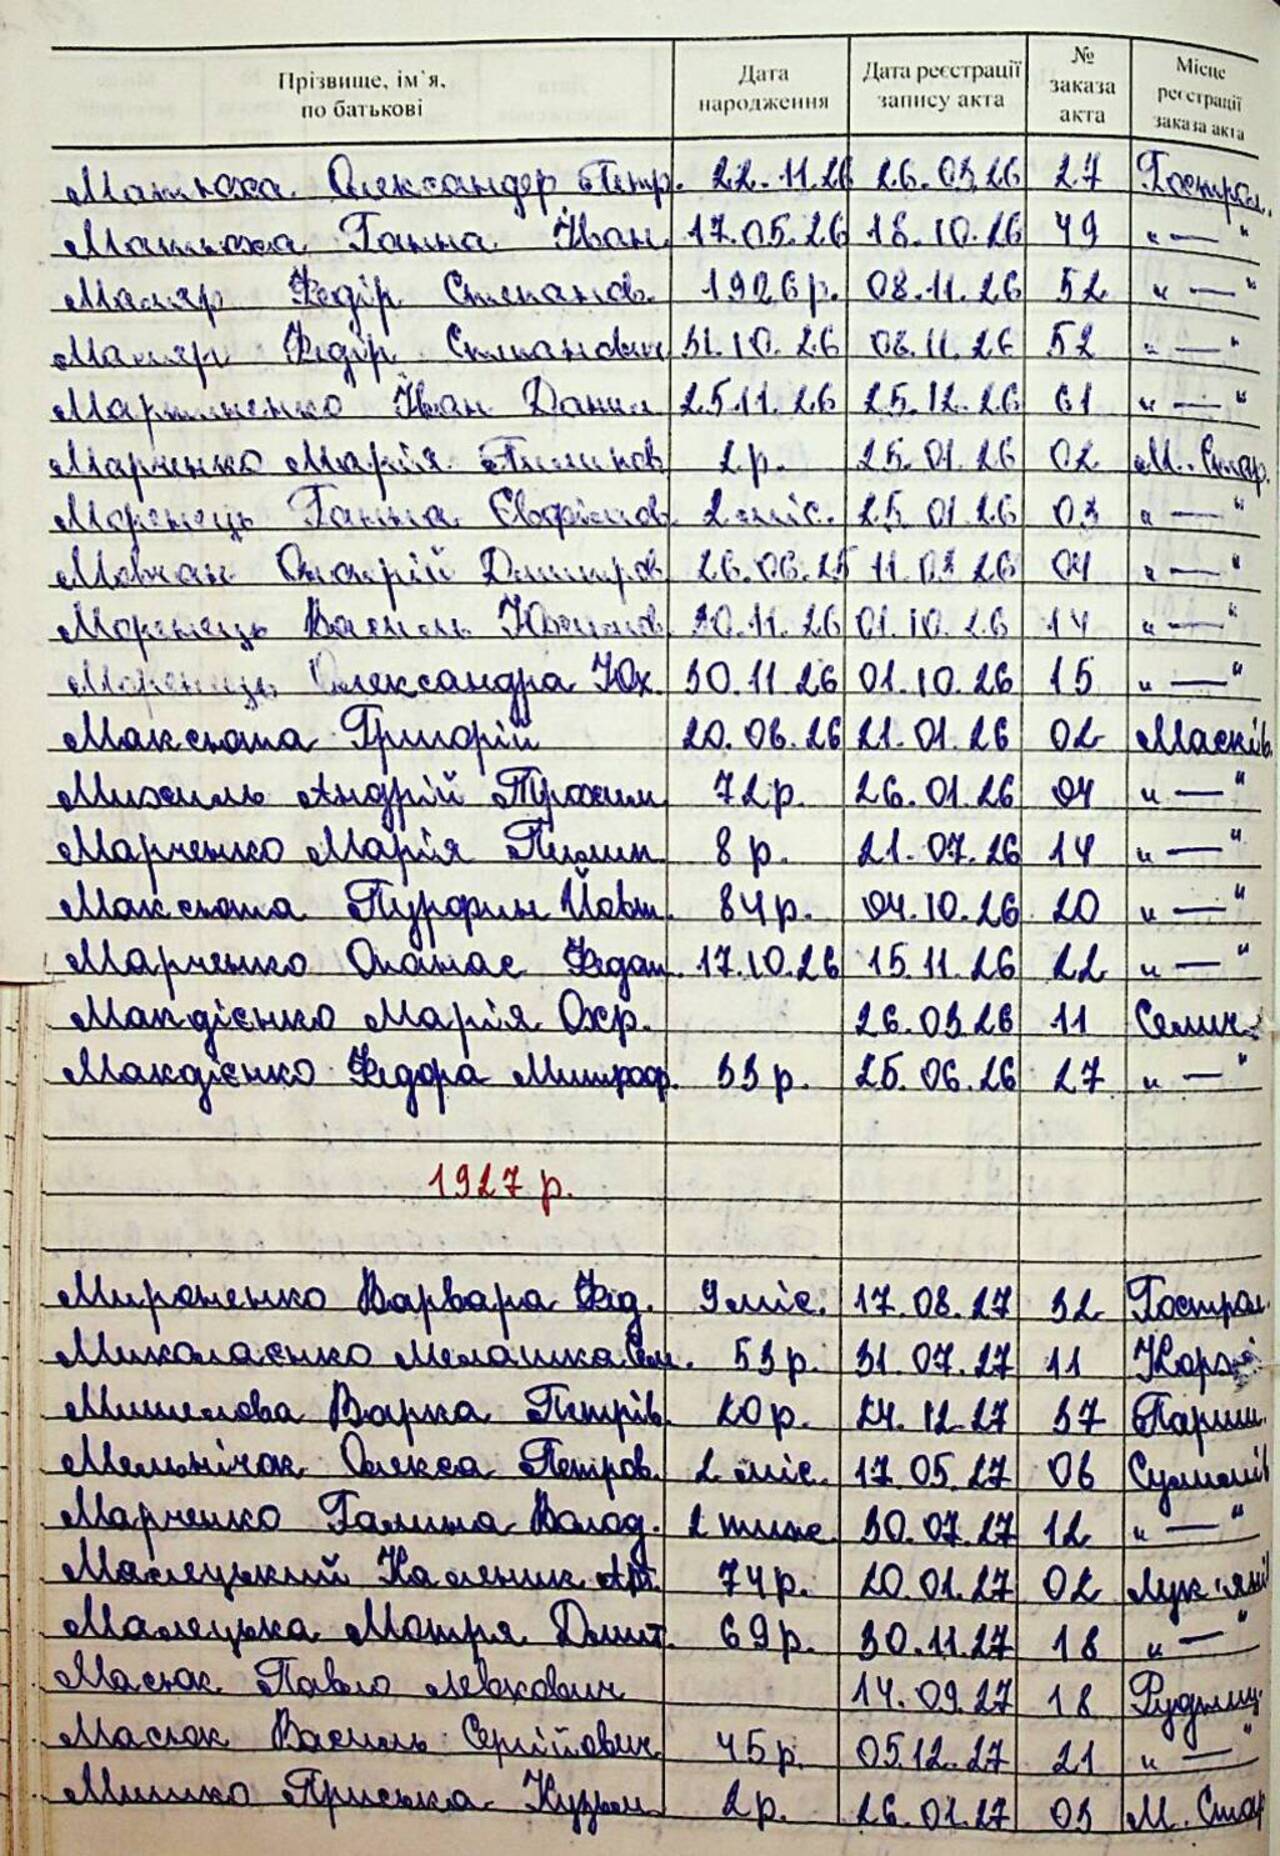 Прізвище, ім`я, по батькові Дата народження Дата реєстрації запису акта № заказа акта Місце реєстрації заказа акта
Матюха Олександер Петр. 22.11.26 26.03.26 27 Гострол.
Матюха Ганна Іван. 17.05.26 18.10.26 49 "—"
Маляр Федір Степанов. 1926р. 08.11.26 52 "—"
Маляр Федір Степанович 31.10.26 08.11.26 52 "—"
Мартиненко Іван Данил. 25.11.26 25.12.26 61 "—"
Марченко Марія Пилипов. 2р. 25.01.26 02 М. Стар.
Моренець Ганна Євфімов. 2 міс. 25.01.26 03 "—"
Мовчан Онопрій Дмитров. 26.06.25 11.03.26 04 "—"
Моренець Василь Юхимов. 30.11.26 01.10.26 14 "—"
Моренець Олександра Юх. 30.11.26 01.10.26 15 "—"
Максюта Григорій 20.06.26 21.01.26 02 Масків.
Михиль Андрій Трохим. 72р. 26.01.26 04 "—"
Марченко Марія Пилип. 8р. 21.07.26 14 "—"
Максюта Йовт. 84р. 04.10.26 20 "—"
Марченко Опанас Федот. 17.10.26 15.11.26 22 "—"
Макдієнко Марія Охр. 26.03.26 11 Семич.
Макдієнко Федора Митроф. 33р. 25.06.26 27 "—"
1927 р.
Мироненко Варвара Фед. 9 міс. 17.08.27 32 Гострол.
Миколаєнко Мелашка Сем. 53р. 31.07.27 11
Варка Петрів. 20р. 24.12.27 37
Мельнічок Олекса Петров. 2 міс. 17.05.27 06 Сулимів
Марченко Галина Волод. 2 тиж. 30.07.27 12 "—"
Малецький Каленик Арт. 74р. 20.01.27 02 Лук'янів
Малецька Мотря Дмит. 69р. 30.11.27 18 "—"
Масюк Павло Левкович 14.09.27 18 Рудниц.
Масюк Василь Сергійович 45р. 05.12.27 21 "—"
Мишко Приська Кузьм. 2р. 26.01.27 03 М. Стар